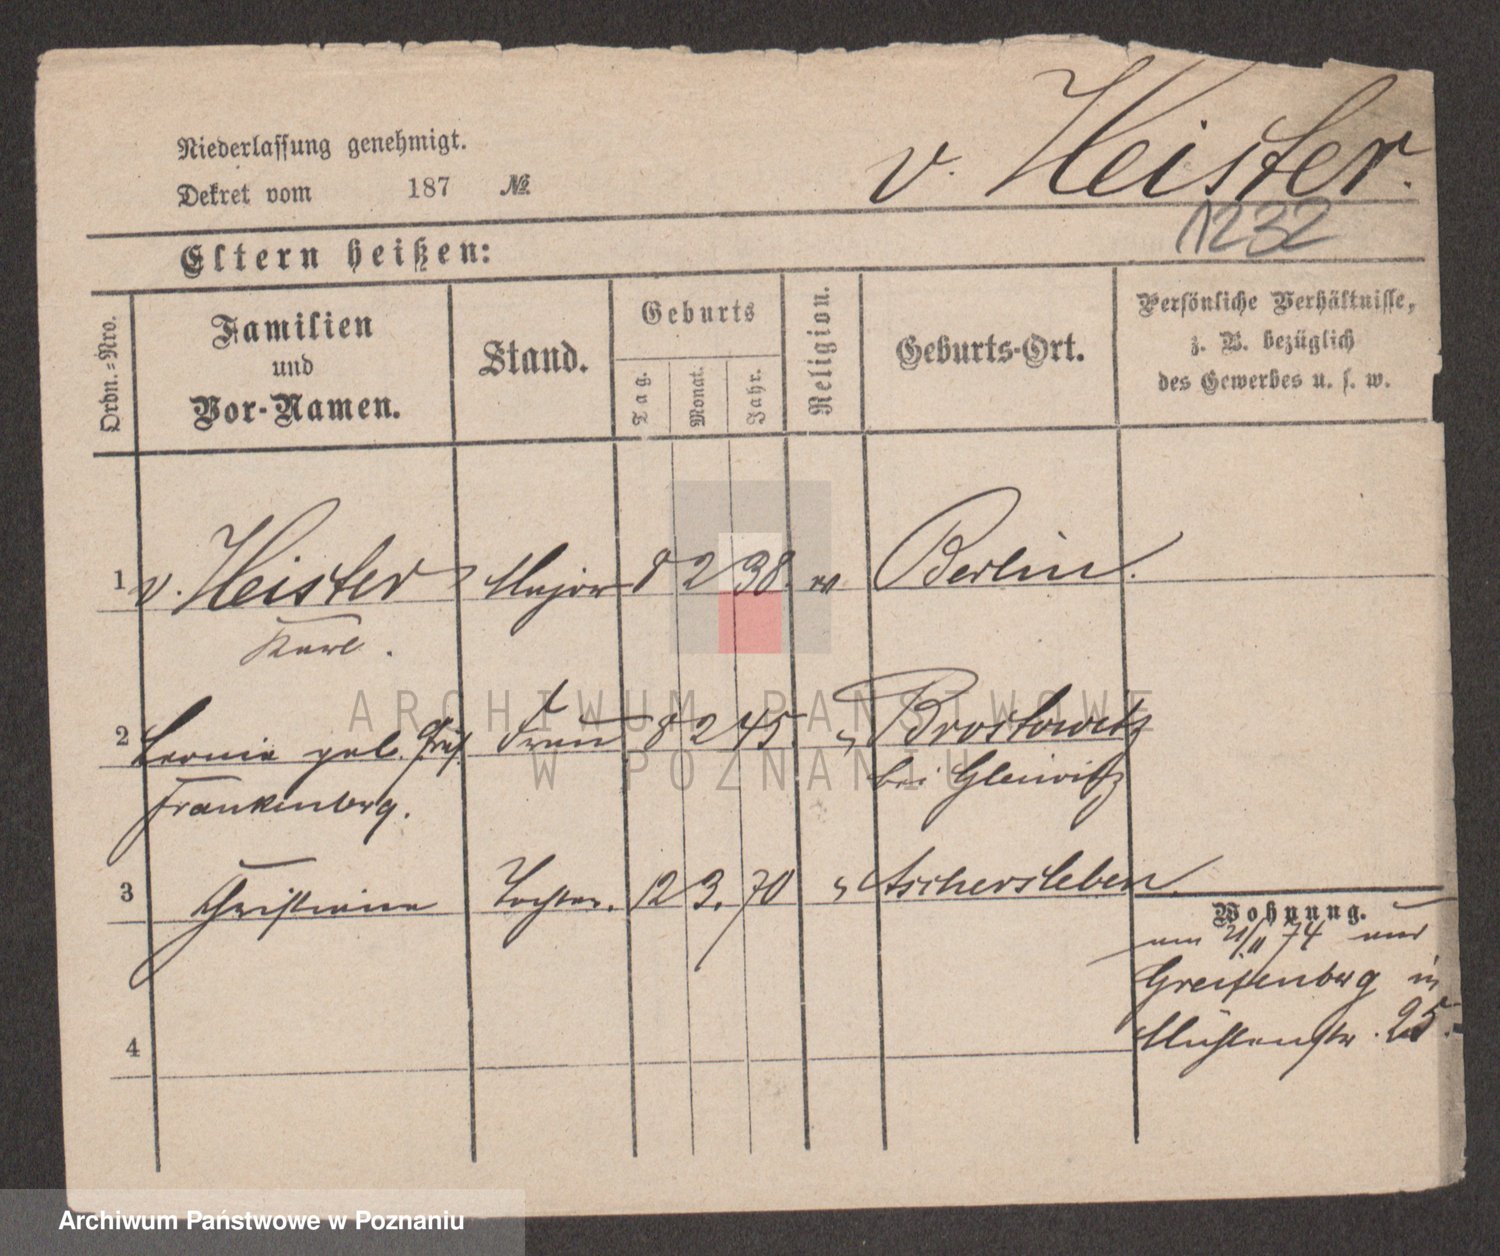 v. Heister.
Niederlassung genehmigt.
Dekret vom 187 №
1232
Eltern heißen:
Ordn.-Nro.
Familien
und
Vor-Namen.
Stand.
Geburts
Tag.
Monat.
Jahr.
Religion.
Geburts-Ort.
Persönliche Verhältnisse,
z. B. bezüglich
des Gewerbes u. s. w.
1 v. Heister Major 8 2 38. ev Berlin.
Karl.
2 Leonie geb. Gräf. Frau 8 2 45. " Brostowitz
Frankenberg. bei Gleiwitz
3 Christiane Tochter. 12 3. 70 " Aschersleben.
Wohnung.
am 21/11 74 aus
Greifenberg in
Mühlenstr. 25.
4
ARCHIWUM PAŃSTWOWE
W POZNANIU
Archiwum Państwowe w Poznaniu